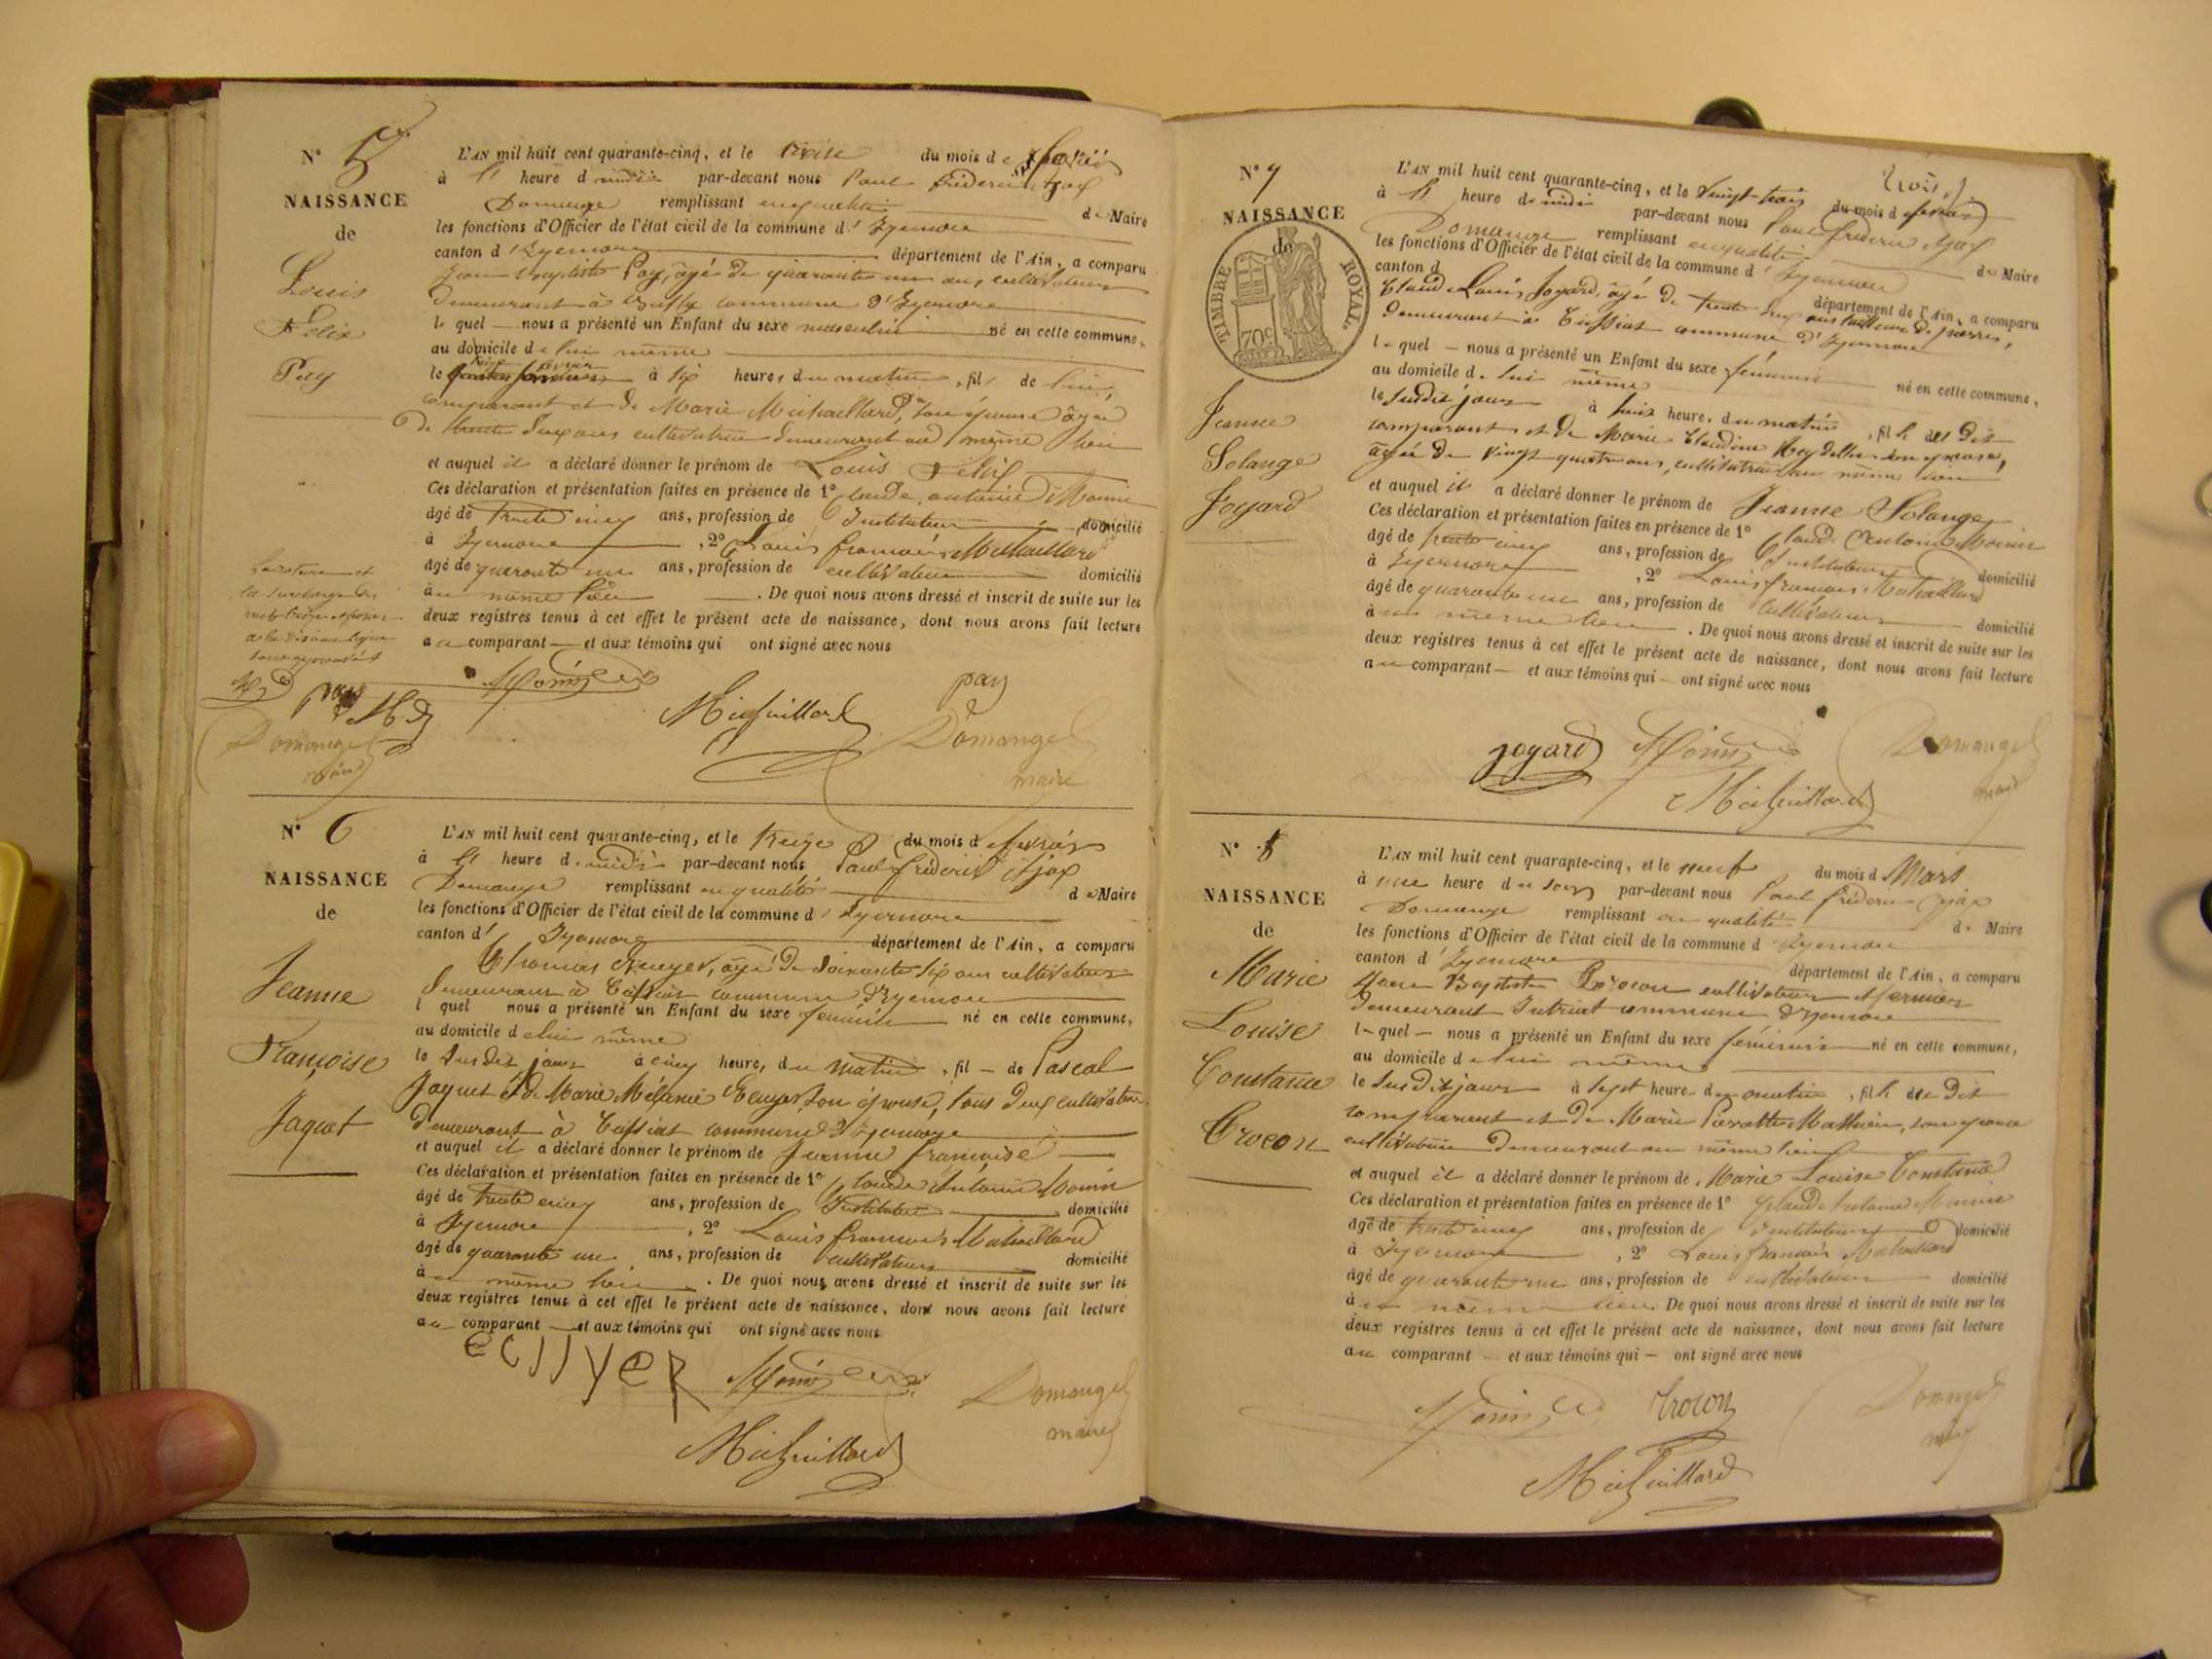 N° 5
NAISSANCE
de
Louis
Félix
Pay
L'AN mil huit cent quarante-cinq, et le treize du mois de février
à heure d midi par-devant nous Paul fréderic Ajax
Domange remplissant en qualité de Maire
les fonctions d'Officier de l'état civil de la commune d' Izernore
canton d' Izernore département de l'Ain, a comparu
Jean Baptiste Pay, âgé de quarante un ans cultivateur
demeurant à commune d'Izernore
le quel nous a présenté un Enfant du sexe masculin né en cette commune,
au domicile de lui même
le à six heures du matin, fils de lui
comparant et de Marie Michaillard, son épouse âgée
de trente deux ans cultivatrice demeurant au même lieu
et auquel il a déclaré donner le prénom de Louis Félix
Ces déclaration et présentation faites en présence de 1° Claude antoine Monin
âgé de trente cinq ans, profession de Instituteur domicilié
à Izernore , 2° Louis françois Michaillard
âgé de quarante un ans, profession de cultivateur domicilié
au même lieu . De quoi nous avons dressé et inscrit de suite sur les
deux registres tenus à cet effet le présent acte de naissance, dont nous avons fait lecture
au comparant et aux témoins qui ont signé avec nous
La rature et
la surcharge des
mots treize
à la dixième ligne
sont approuvés
Monin
pay
Michaillard
Domange
maire
Domange
N° 6
NAISSANCE
de
Jeanne
Françoise
Jaquet
L'AN mil huit cent quarante-cinq, et le treize du mois d février
à heure d midi par-devant nous Paul fréderic Ajax
Domange remplissant en qualité de Maire
les fonctions d'Officier de l'état civil de la commune d' Izernore
canton d' Izernore département de l'Ain, a comparu
Thomas Ecuyer, âgé de soixante six ans cultivateur
demeurant à Ceissiat commune d'Izernore
l quel nous a présenté un Enfant du sexe féminin né en cette commune,
au domicile de lui même
le susdit jour à cinq heure, du matin , fil de Pascal
Jaquet et de Marie Mélanie Ecuyer son épouse, tous deux cultivateurs
demeurant à Ceissiat commune d'Izernore
et auquel il a déclaré donner le prénom de Jeanne françoise
Ces déclaration et présentation faites en présence de 1° Claude Antoine Monin
âgé de trente cinq ans, profession de Instituteur domicilié
à Izernore , 2° Louis françois Michaillard
âgé de quarante un ans, profession de cultivateur domicilié
au même lieu . De quoi nous avons dressé et inscrit de suite sur les
deux registres tenus à cet effet le présent acte de naissance, dont nous avons fait lecture
au comparant et aux témoins qui ont signé avec nous
ecuyer
Monin
Domange
maire
Michaillard
N° 7
NAISSANCE
de
TIMBRE ROYAL.
70c
Jeanne
Solange
Joyard
L'AN mil huit cent quarante-cinq, et le vingt-trois du mois d février
à heure de midi par-devant nous Paul fréderic Ajax
Domange remplissant en qualité de Maire
les fonctions d'Officier de l'état civil de la commune d' Izernore
canton d département de l'Ain, a comparu
Claude Louis Joyard, âgé de trente deux ans tailleur de pierres,
demeurant à Ceissiat commune d'Izernore
le quel nous a présenté un Enfant du sexe féminin né en cette commune,
au domicile de lui même
le susdit jour à huit heure, du matin , fille du dit
comparant et de Marie Claudine son épouse,
âgée de vingt quatre ans, cultivatrice au même lieu
et auquel il a déclaré donner le prénom de Jeanne Solange
Ces déclaration et présentation faites en présence de 1° Claude Antoine Monin
âgé de trente cinq ans, profession de Instituteur domicilié
à Izernore , 2° Louis françois Michaillard
âgé de quarante un ans, profession de Cultivateur domicilié
au même lieu . De quoi nous avons dressé et inscrit de suite sur les
deux registres tenus à cet effet le présent acte de naissance, dont nous avons fait lecture
au comparant et aux témoins qui ont signé avec nous
joyard
Monin
Domange
Michaillard
N° 8
NAISSANCE
de
Marie
Louise
Constance
Crocon
L'AN mil huit cent quarante-cinq, et le neuf du mois d Mars
à une heure du soir par-devant nous Paul fréderic Ajax
Domange remplissant en qualité de Maire
les fonctions d'Officier de l'état civil de la commune d Izernore
canton d' Izernore département de l'Ain, a comparu
Baptiste Crocon cultivateur
demeurant commune d'Izernore
le quel nous a présenté un Enfant du sexe féminin né en cette commune,
au domicile de lui même
le susdit jour à sept heure du matin , fille du dit
comparant et de Marie Pierrette Mathieu, son épouse
cultivatrice demeurant au même lieu
et auquel il a déclaré donner le prénom de Marie Louise Constance
Ces déclaration et présentation faites en présence de 1° Claude Antoine Monin
âgé de trente cinq ans, profession de Instituteur domicilié
à Izernore , 2° Louis françois Michaillard
âgé de quarante un ans, profession de cultivateur domicilié
au même lieu. De quoi nous avons dressé et inscrit de suite sur les
deux registres tenus à cet effet le présent acte de naissance, dont nous avons fait lecture
au comparant et aux témoins qui ont signé avec nous
Monin
Crocon
Domange
Michaillard